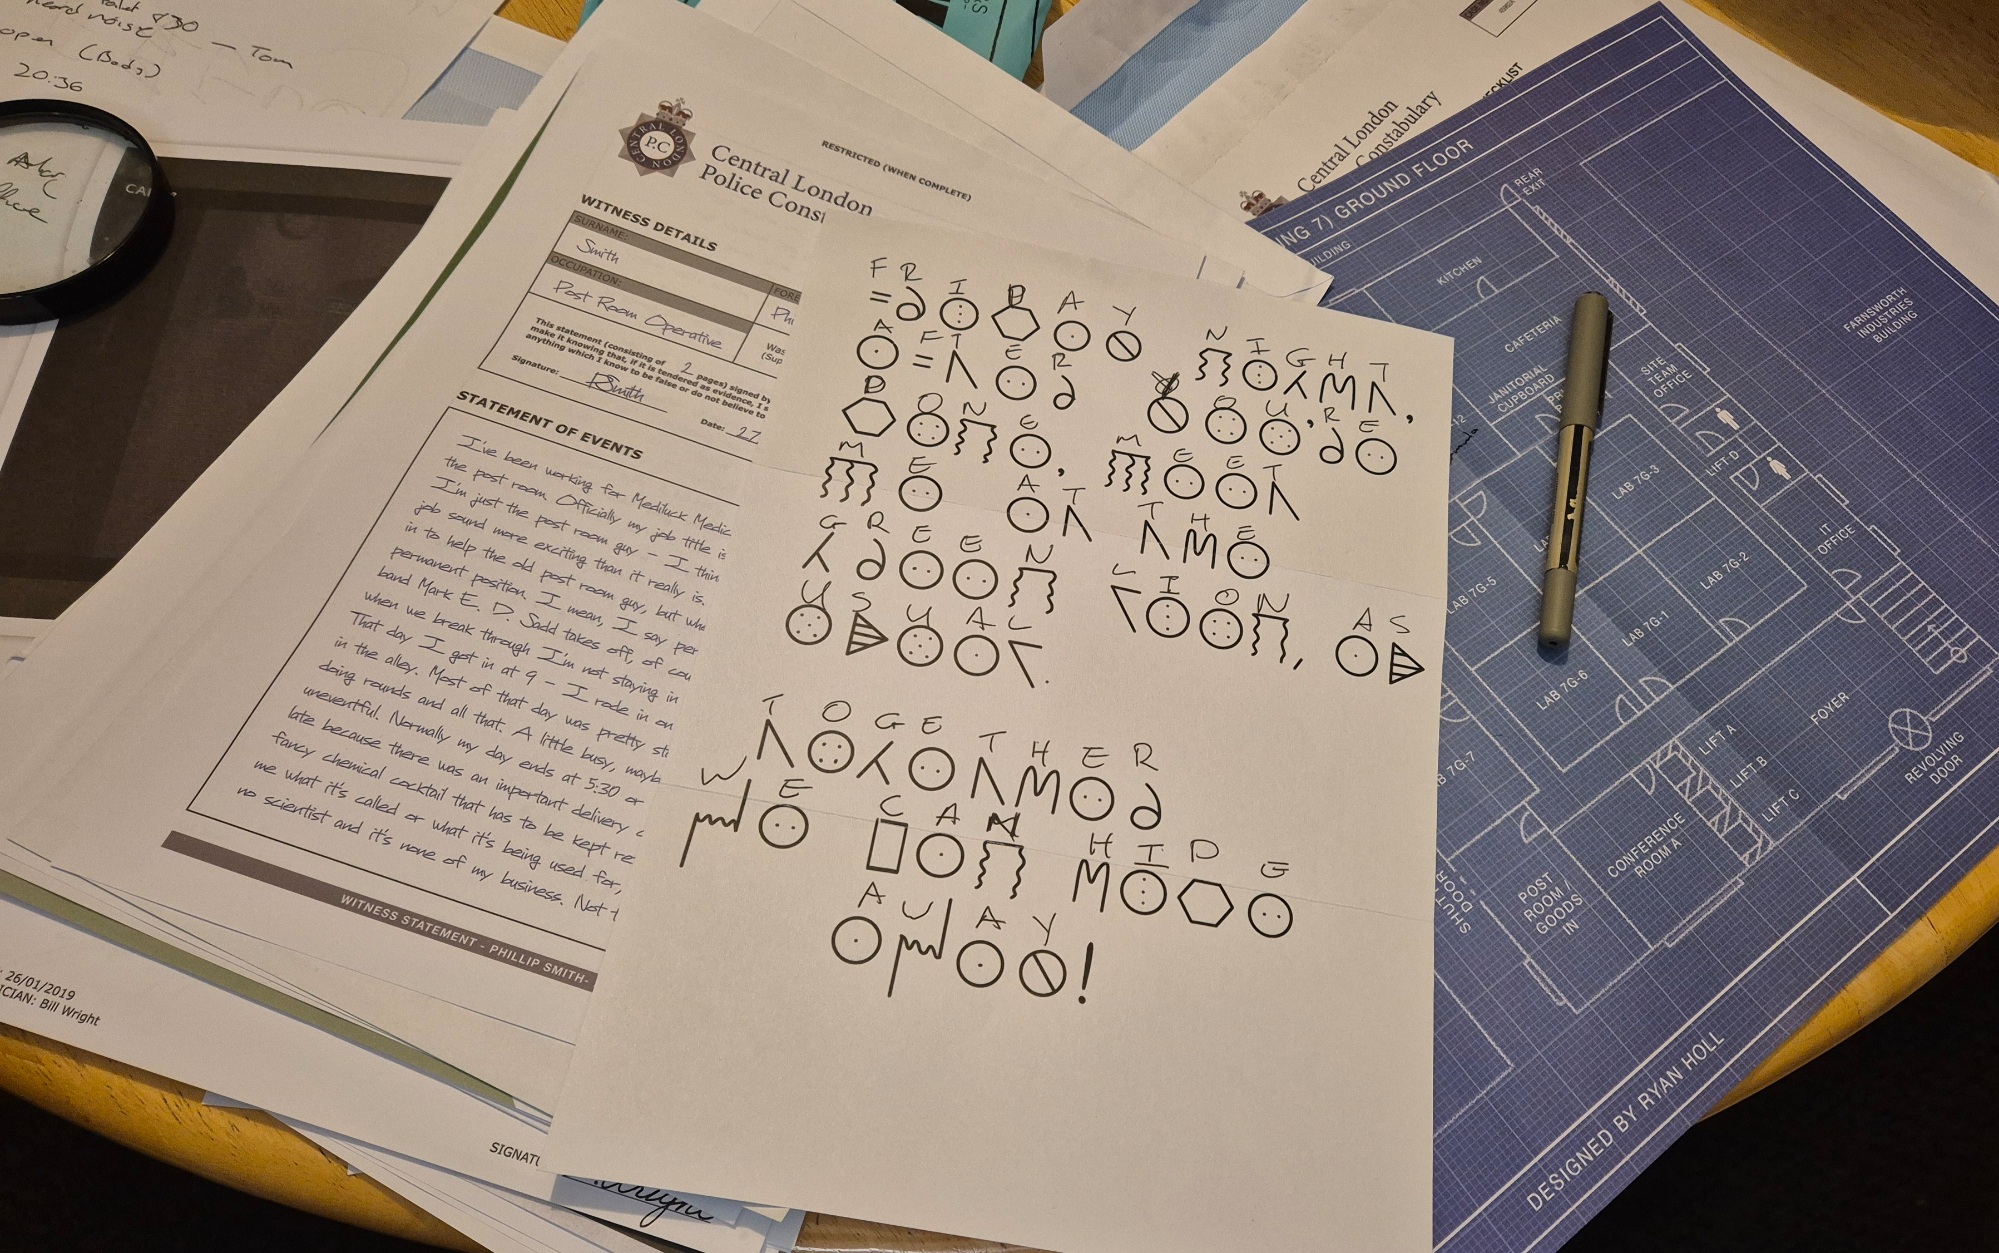 toilet
heard noise
— Tom
open (Body)
20:36
RESTRICTED (WHEN COMPLETE)
CENTRAL LONDON
P.C
Central London
Police Cons
WITNESS DETAILS
SURNAME:
Smith
FORE
OCCUPATION:
Phi
Post Room Operative
Was
(Sup
This statement (consisting of 2 pages) signed by
make it knowing that, if it is tendered as evidence, I s
anything which I know to be false or do not believe to
Signature: PSmith
Date: 27
STATEMENT OF EVENTS
I've been working for Mediluck Medic
the post room. Officially my job title is
I'm just the post room guy – I thin
job sound more exciting than it really is.
in to help the old post room guy, but whe
permanent position. I mean, I say per
band Mark E. D. Sadd takes off, of cou
when we break through I'm not staying in
That day I got in at 9 – I rode in on
in the alley. Most of that day was pretty sti
doing rounds and all that. A little busy, mayb
uneventful. Normally my day ends at 5:30 or
late because there was an important delivery c
fancy chemical cocktail that has to be kept re
me what it's called or what it's being used for,
no scientist and it's none of my business. Not t
WITNESS STATEMENT - PHILLIP SMITH-
26/01/2019
CIAN: Bill Wright
SIGNATU
FRIDAY NIGHT,
AFTER YOU'RE
DONE, MEET
ME AT THE
GREEN LION, AS
USUAL.
TOGETHER
WE CAN HIDE
AWAY!
Central London
Constabulary
ECKLIST
ING 7) GROUND FLOOR
UILDING
REAR
EXIT
KITCHEN
CAFETERIA
FARNSWORTH
INDUSTRIES
BUILDING
JANITORIAL
CUPBOARD
SITE
TEAM
OFFICE
LIFT D
LAB 7G-3
IT
OFFICE
LAB 7G-2
LAB 7G-5
LAB 7G-1
LAB 7G-6
FOYER
LIFT A
LIFT B
LIFT C
REVOLVING
DOOR
B 7G-7
CONFERENCE
ROOM A
POST
ROOM /
GOODS
IN
SHUTTER
DOOR
DESIGNED BY RYAN HOLL